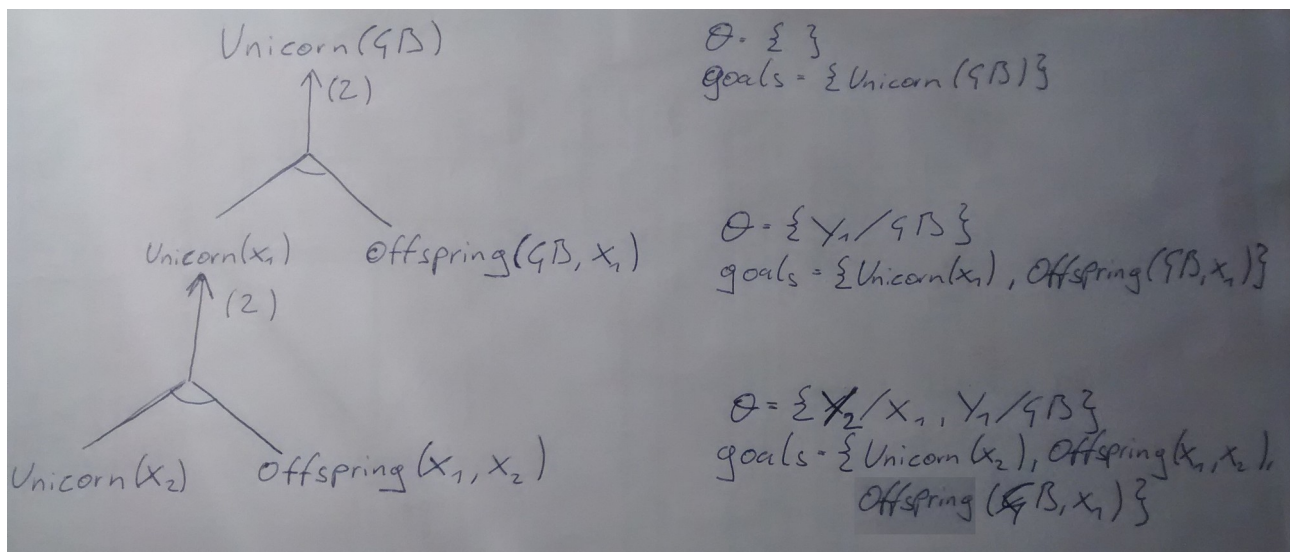 Unicorn(GB)
(2)
Unicorn(x₁) Offspring(GB, x₁)
(2)
Unicorn(x₂) Offspring(x₁, x₂)
θ = { }
goals = {Unicorn(GB)}
θ = {y₁/GB}
goals = {Unicorn(x₁), Offspring(GB, x₁)}
θ = {y₂/x₁, y₁/GB}
goals = {Unicorn(x₂), Offspring(x₁, x₂),
Offspring(GB, x₁)}